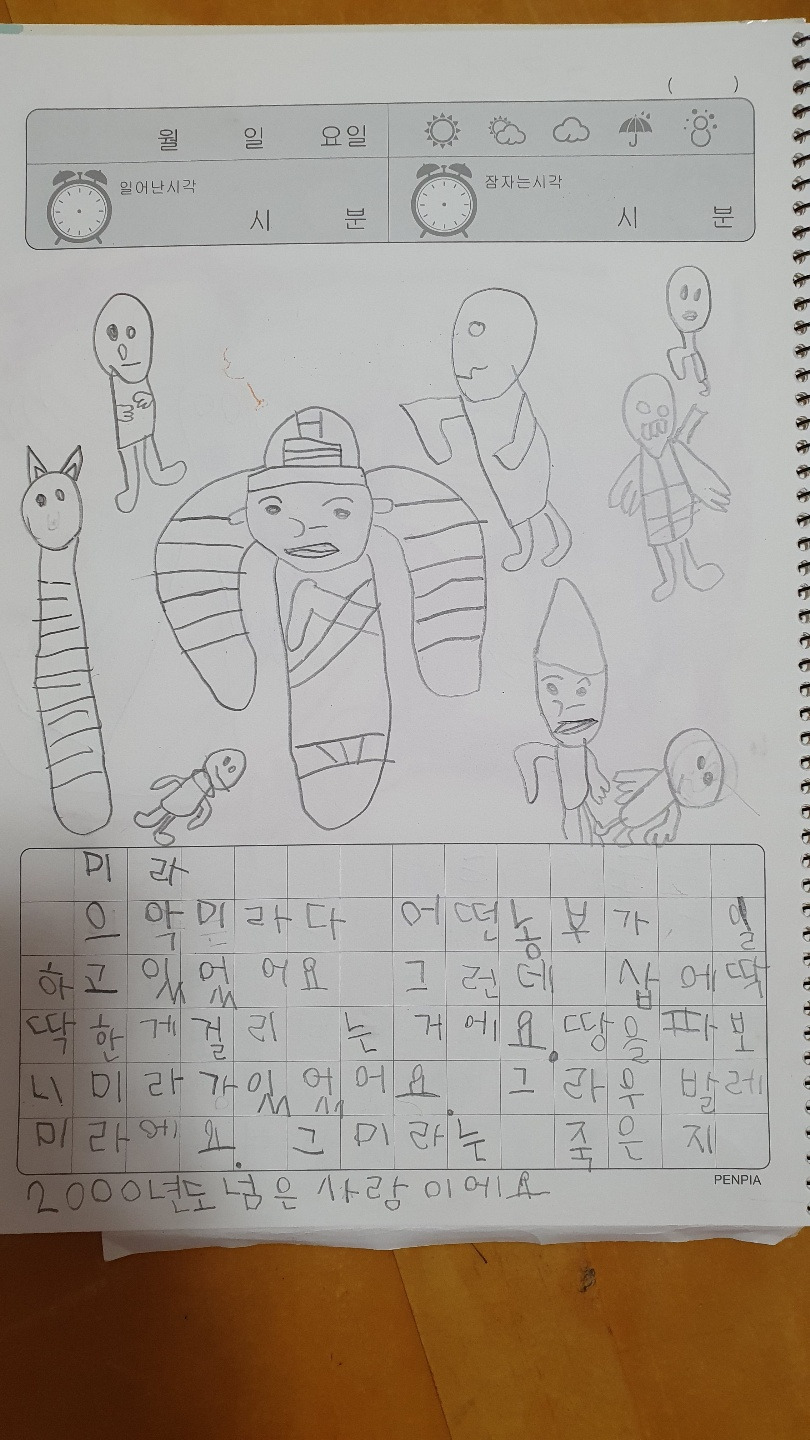 ( )
월 일 요일
일어난시각
시 분
잠자는시각
시 분
미라
으악미라다 어떤농부가 일
하고있었어요 그런데 삽에딱
딱한게걸리 는거에요.땅을파보
니미라가있었어요. 그라우발레
미라에요. 그미라는 죽은지
PENPIA
2000년도넘은사람이에요